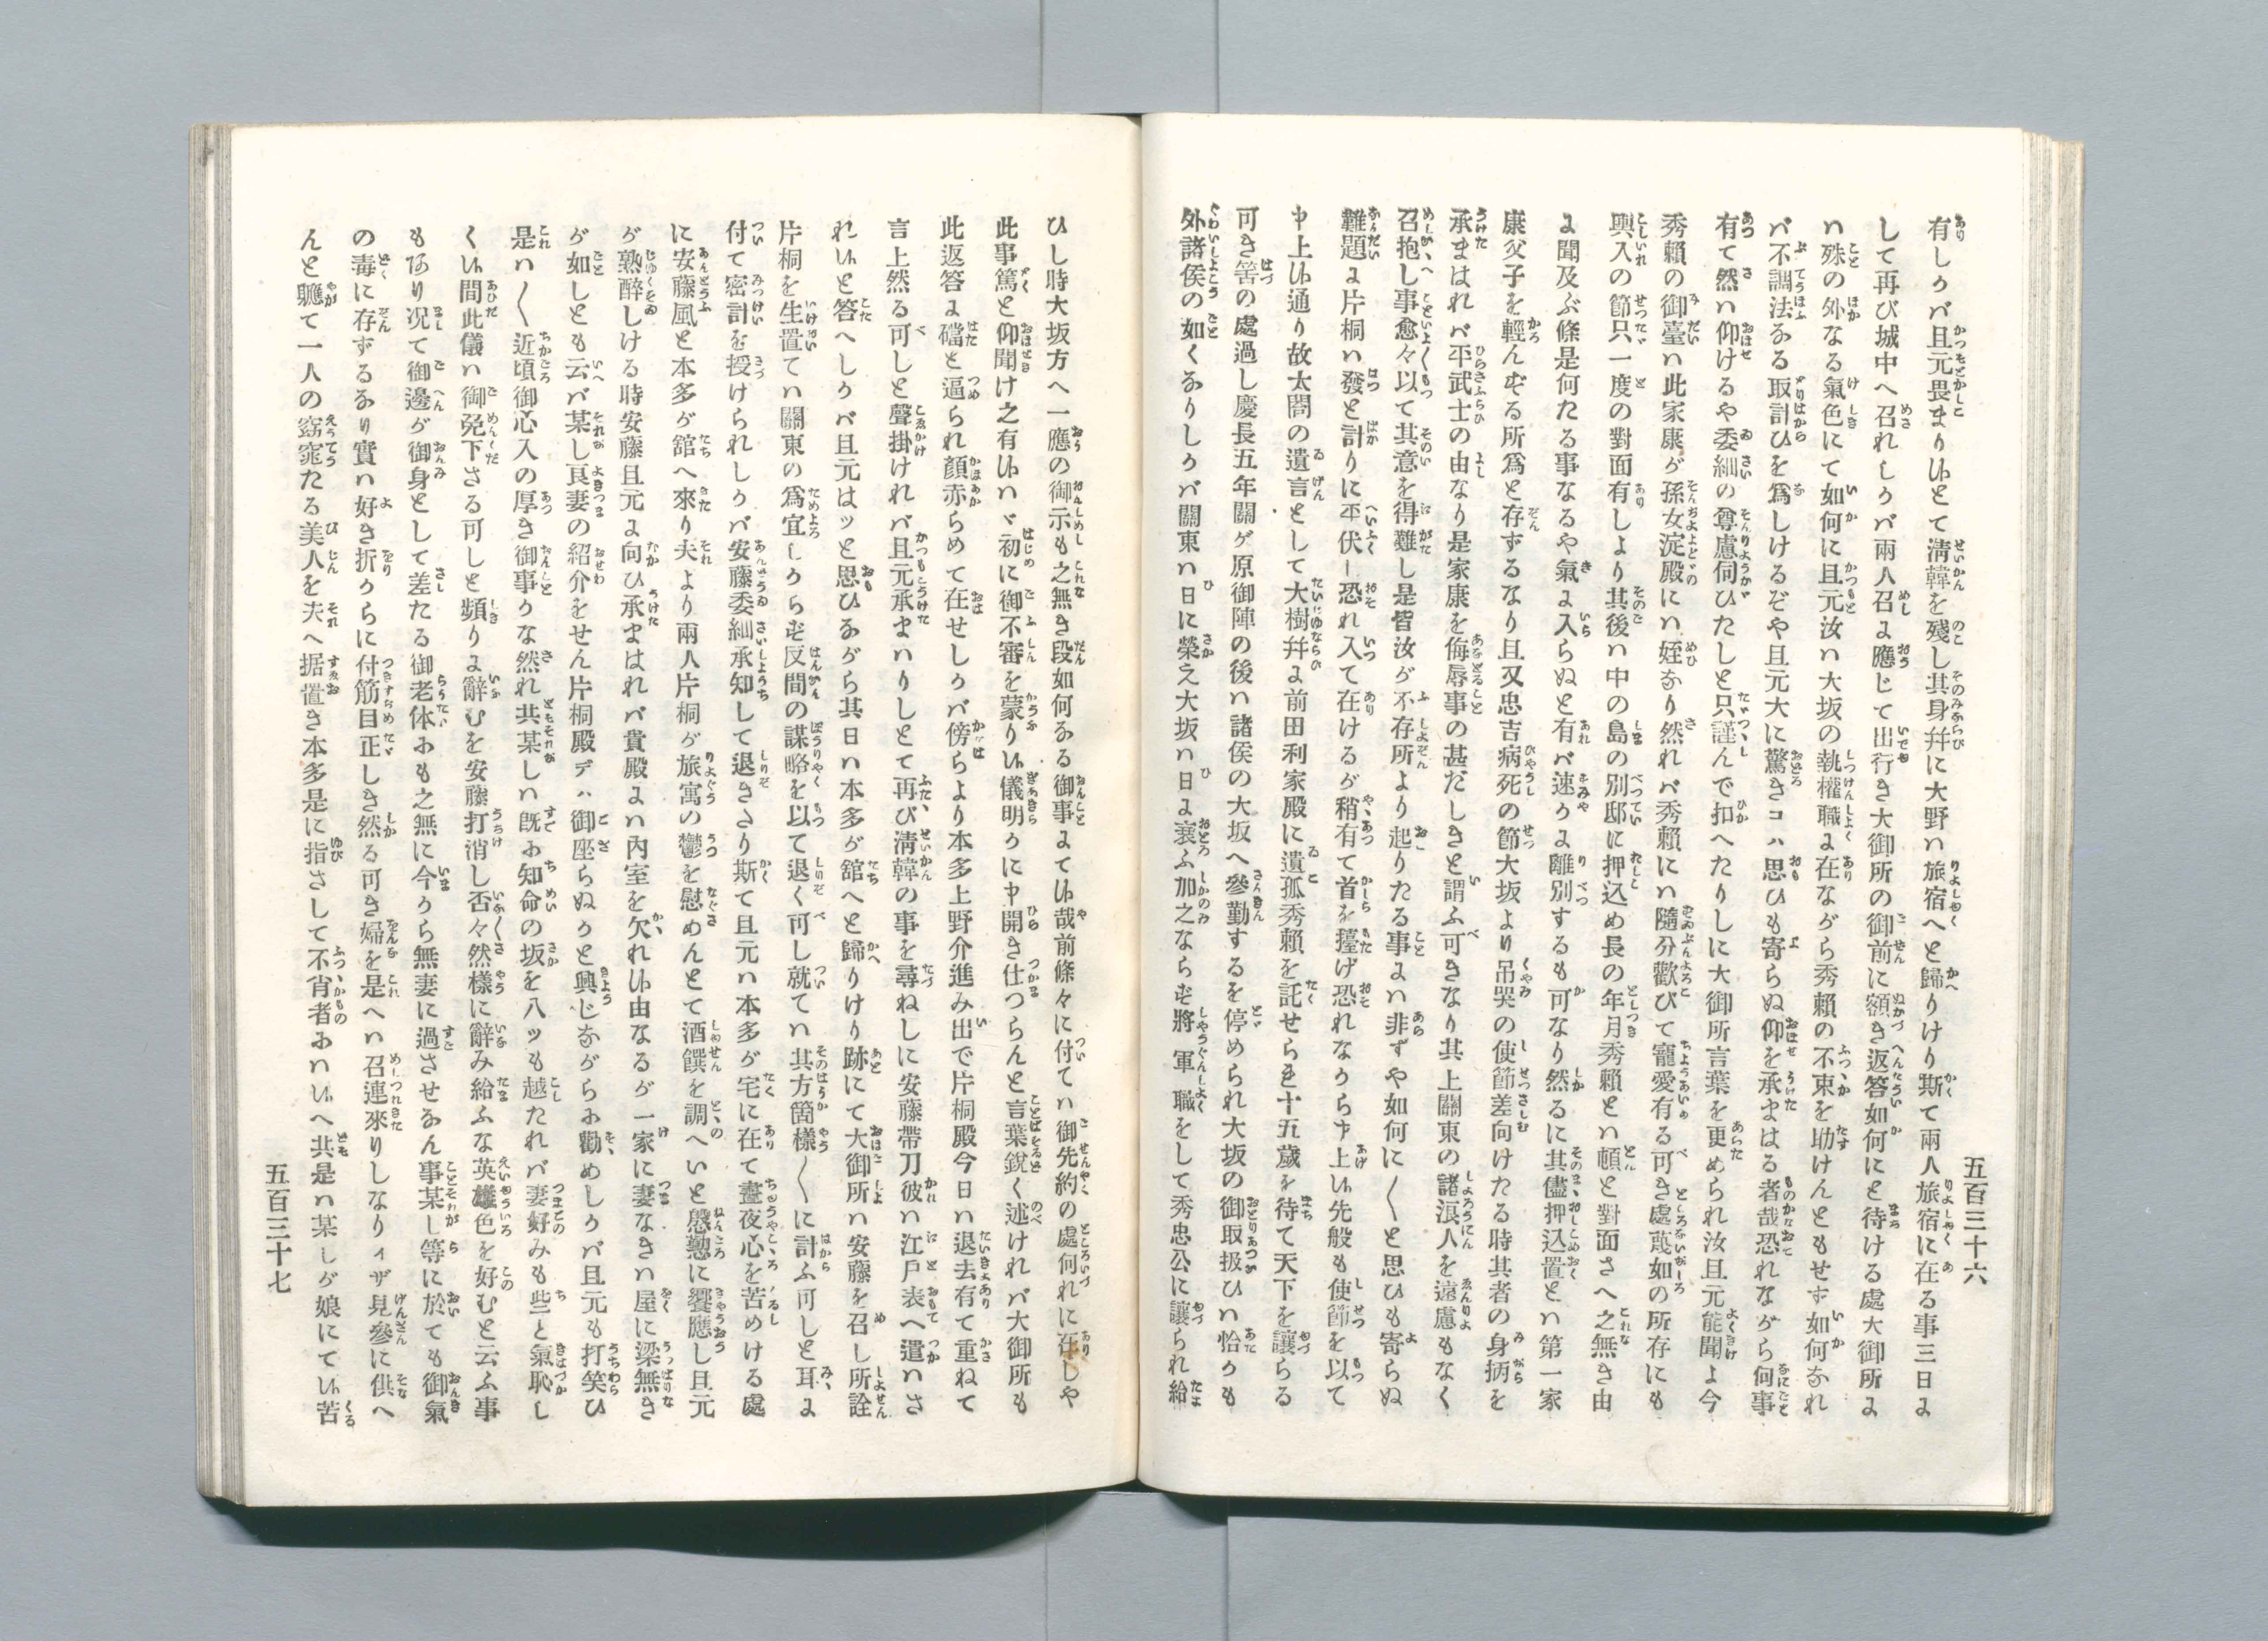 五百三十六
有しかバ且元畏まり候とて淸韓を殘し其身幷に大野ハ旅宿へと歸りけり斯て兩人旅宿に在る事三日に
して再び城中へ召れしかバ兩人召に應じて出行き大御所の御前に額き返答如何にと待ける處大御所に
ハ殊の外なる氣色にて如何に且元汝ハ大坂の執權職に在ながら秀賴の不束を助けんともせず如何なれ
バ不調法なる取計ひを爲しけるぞや且元大に驚きコハ思ひも寄らぬ仰を承まはる者哉恐れながら何事
有て然ハ仰けるや委細の尊慮伺ひたしと只謹んで扣へたりしに大御所言葉を更められ汝且元能聞よ今
秀賴の御臺ハ此家康が孫女淀殿にハ姪なり然れバ秀賴にハ隨分歡びて寵愛有る可き處蔑如の所存にも
輿入の節只一度の對面有しより其後ハ中の島の別邸に押込め長の年月秀賴とハ頓と對面さへ之無き由
に聞及ぶ條是何たる事なるや氣に入らぬと有バ速かに離別するも可なり然るに其儘押込置とハ第一家
康父子を輕んずる所爲と存ずるなり且又忠吉病死の節大坂より吊哭の使節差向けたる時其者の身柄を
承まはれバ平武士の由なり是家康を侮辱事の甚だしきと謂ふ可きなり其上關東の諸浪人を遠慮もなく
召抱し事愈々以て其意を得難し是皆汝が不存所より起りたる事にハ非ずや如何に〱と思ひも寄らぬ
難題に片桐ハ發と計りに平伏し恐れ入て在けるが稍有て首を擡げ恐れなから申上候先般も使節を以て
申上候通り故太閤の遺言として大樹幷に前田利家殿に遺孤秀賴を託せられ十五歲を待て天下を讓らる
可き筈の處過し慶長五年關ヶ原御陣の後ハ諸侯の大坂へ參勤するを停められ大坂の御取扱ひハ恰かも
外諸侯の如くなりしかバ關東ハ日に榮え大坂ハ日に衰ふ加之ならず將軍職をして秀忠公に讓られ給
ひし時大坂方へ一應の御示も之無き段如何なる御事にて候哉前條々に付てハ御先約の處何れに在しや
此事篤と仰聞け之有候ハヾ初に御不審を蒙り候儀明かに申開き仕つらんと言葉銳く述けれバ大御所も
此返答に礑と逼られ顏赤らめて在せしかバ傍らより本多上野介進み出で片桐殿今日ハ退去有て重ねて
言上然る可しと聲掛けれバ且元承まハりしとて再び淸韓の事を尋ねしに安藤帶刀彼ハ江戶表へ遣ハさ
れ候と答へしかバ且元はッと思ひながら其日ハ本多が舘へと歸りけり跡にて大御所ハ安藤を召し所詮
片桐を生置てハ關東の爲宜しからず反間の謀略を以て退く可し就てハ其方箇樣〱に計ふ可しと耳に
付て密計を授けられしかバ安藤委細承知して退きさり斯て且元ハ本多が宅に在て晝夜心を苦めける處
に安藤風と本多が舘へ來り夫より兩人片桐が旅寓の鬱を慰めんとて酒饌を調へいと慇懃に饗應し且元
が熟醉しける時安藤且元に向ひ承まはれバ貴殿にハ內室を欠れ候由なるが一家に妻なきハ屋に梁無き
が如しとも云へバ某し良妻の紹介をせん片桐殿デハ御座らぬかと興じながらに勸めしかバ且元も打笑ひ
是ハ〱近頃御心入の厚き御事かな然れ共某しハ旣に知命の坂を八ッも越たれバ妻好みも些と氣恥し
く候間此儀ハ御免下さる可しと頻りに辭むを安藤打消し否々然樣に辭み給ふな英雄色を好むと云ふ事
もあり况て御邊が御身として差たる御老体にも之無に今から無妻に過させなん事某し等に於ても御氣
の毒に存ずるなり實ハ好き折からに付筋目正しき然る可き婦を是へハ召連來りしなりィザ見參に供へ
んと軈て一人の窈窕たる美人を夫へ据置き本多是に指さして不肖者にハ候へ共是ハ某しが娘にて候苦
五百三十七